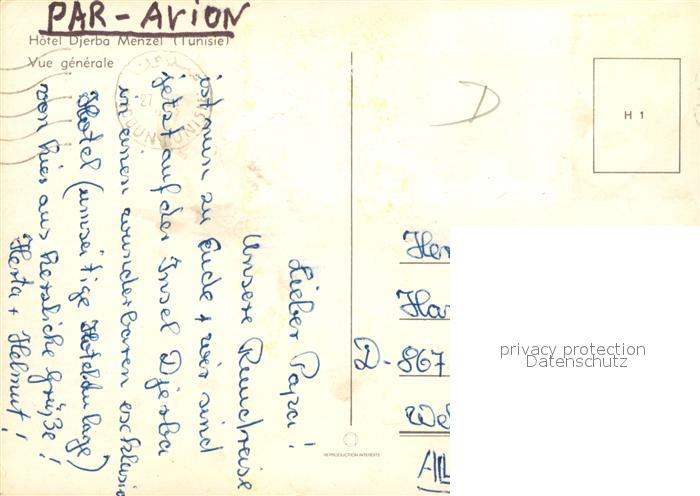 PAR-AVION
Hôtel Djerba Menzel (Tunisie)
Vue générale
Lieber Papa!
Unsere Rundreise
ist nun zu Ende + wir sind
jetzt auf der Insel Djerba
in einen wunderbaren exklusiv
Hotel (umseitige Hotelanlage)
von hier aus herzliche Grüße!
Herta + Helmut!
D
H 1
Her
Ha
D-867
We
All
privacy protection
Datenschutz
REPRODUCTION INTERDITE